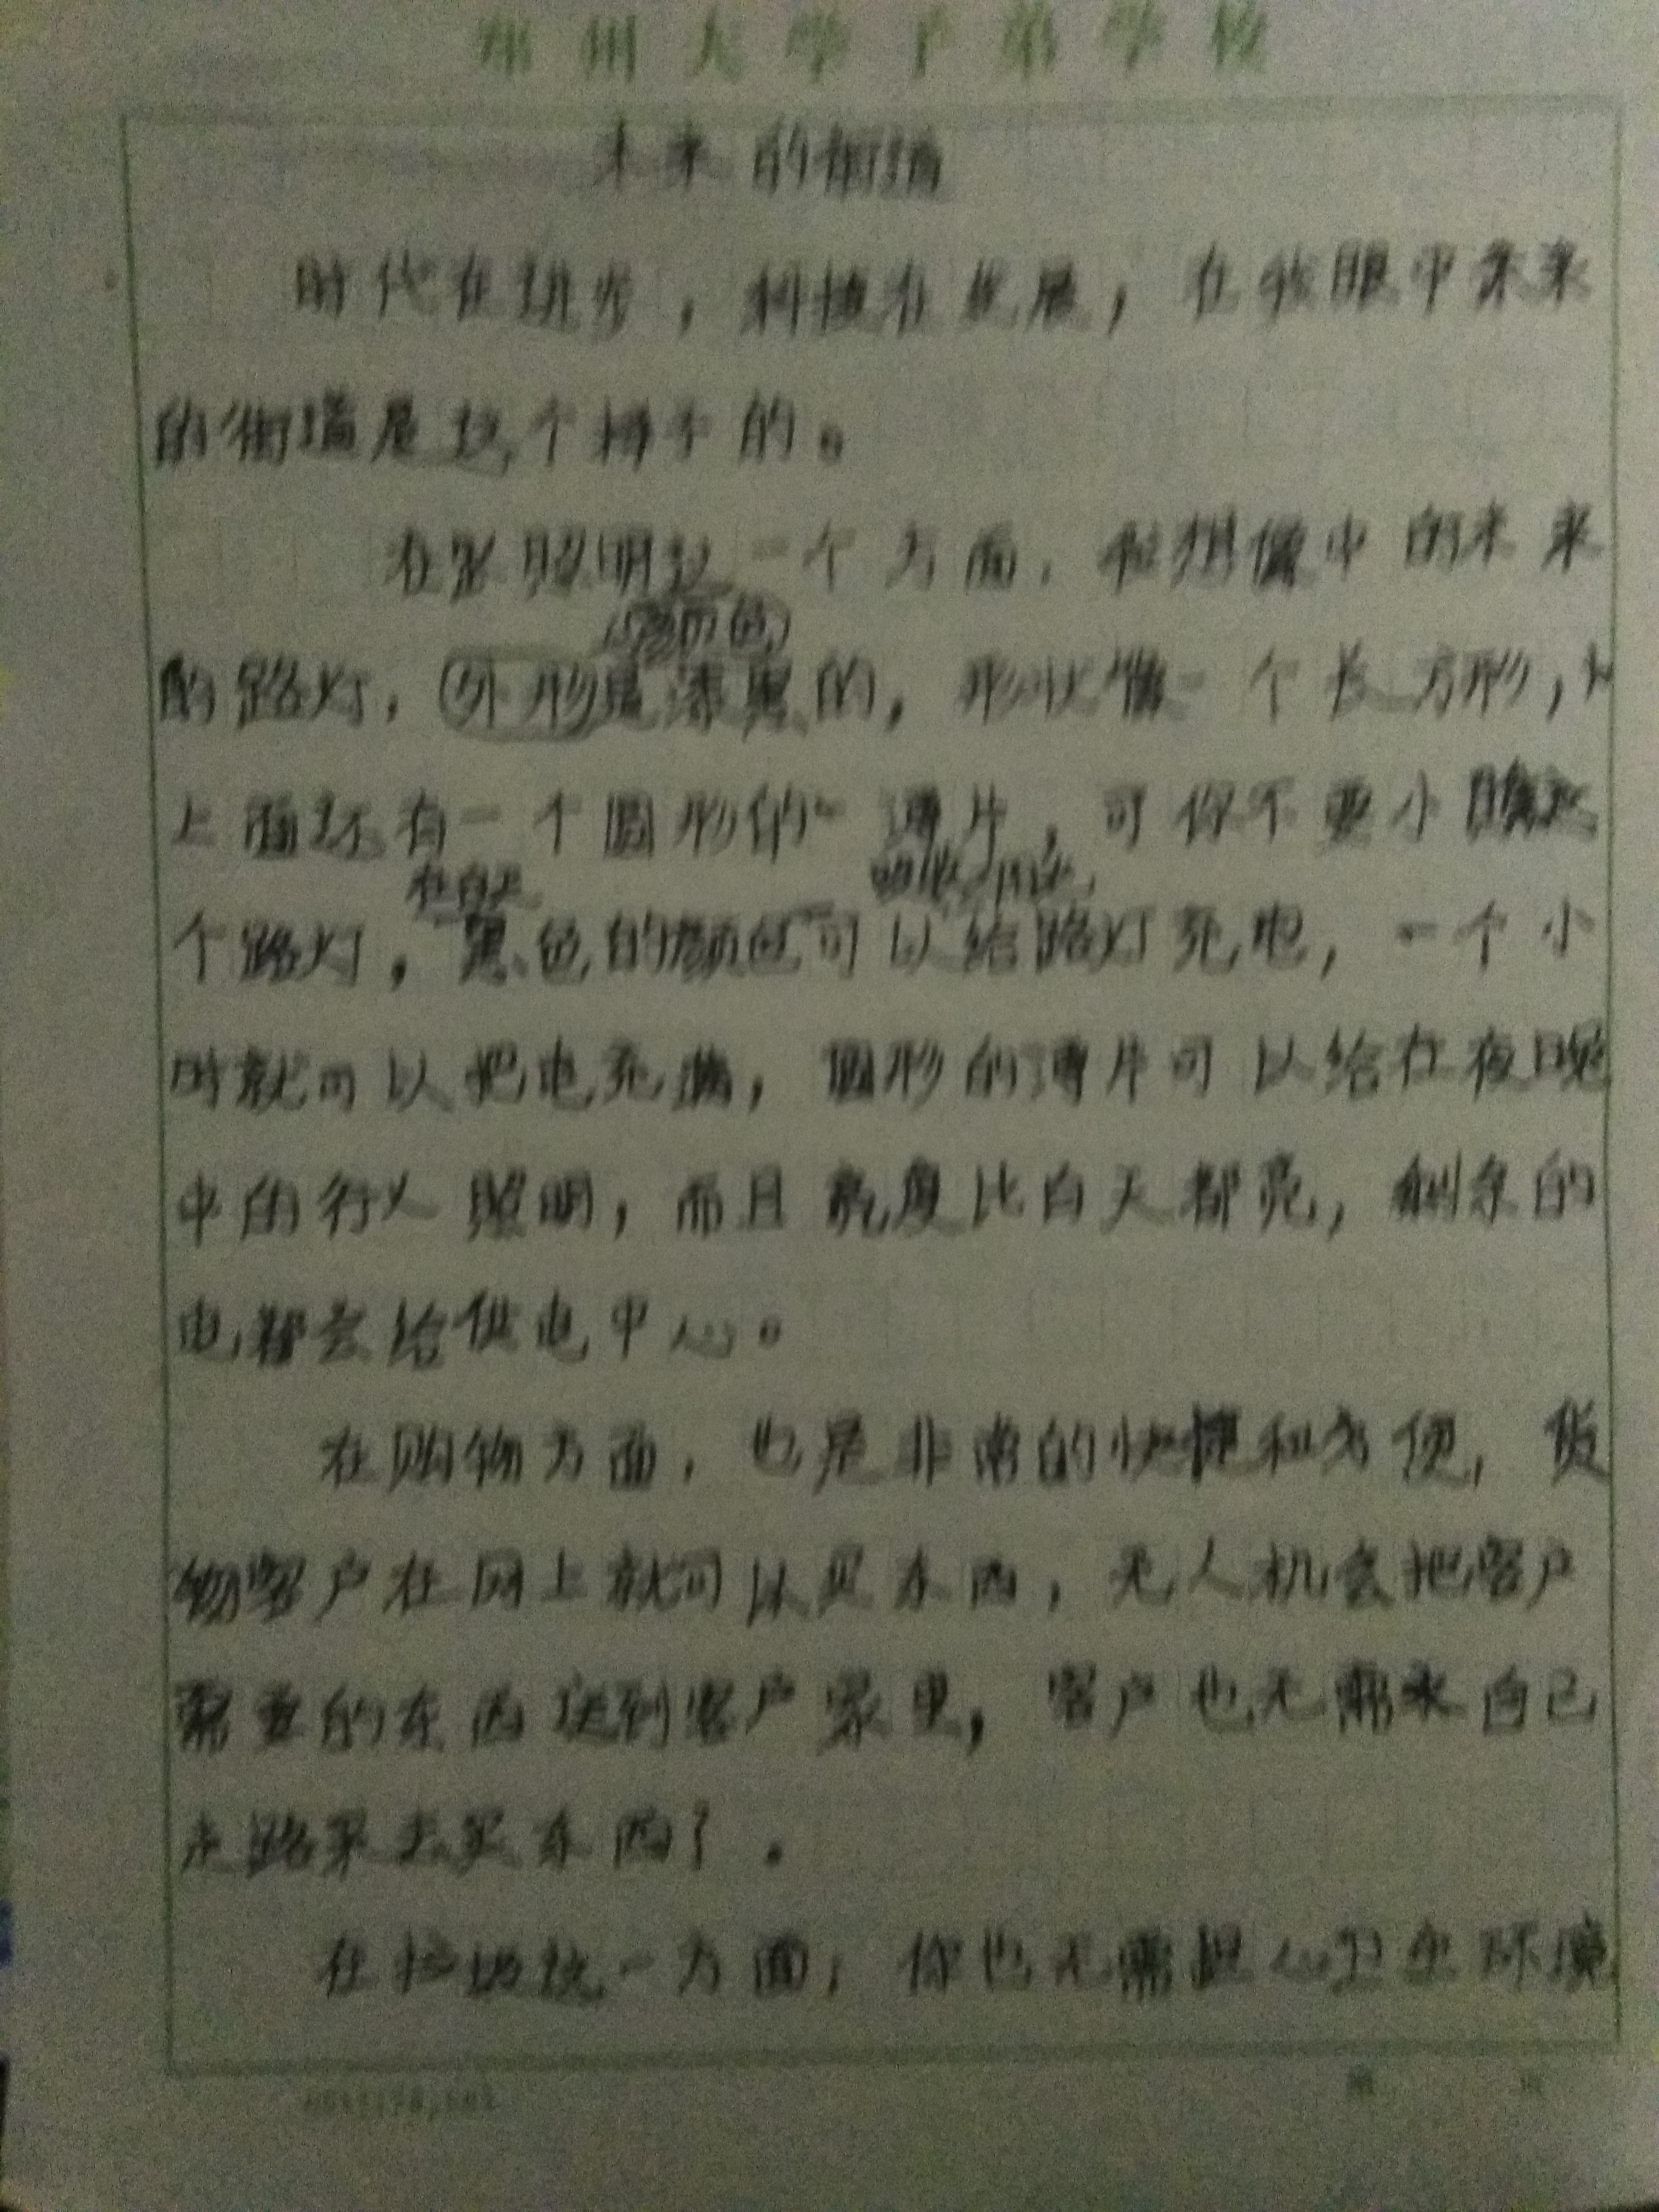 郑州大学子弟学校
未来的街道
时代在进步，科技在发展，在我眼中未来
的街道是这个样子的。
在照明这一个方面，我想像中的未来
(颜色)
的路灯，外形是漆黑的，形状像一个长方形，
上面还有一个圆形的薄片，可你不要小瞧这
在白天 吸收阳光
个路灯，黑色的颜色可以给路灯充电，一个小
时就可以把电充满，圆形的薄片可以给在夜晚
中的行人照明，而且亮度比白天都亮，剩余的
电都会给供电中心。
在购物方面，也是非常的快捷和方便，货
物客户在网上就可以买东西，无人机会把客户
需要的东西送到客户家里，客户也无需求自己
走路来去买东西了。
在垃圾这一方面，你也无需担心卫生环境
第 页